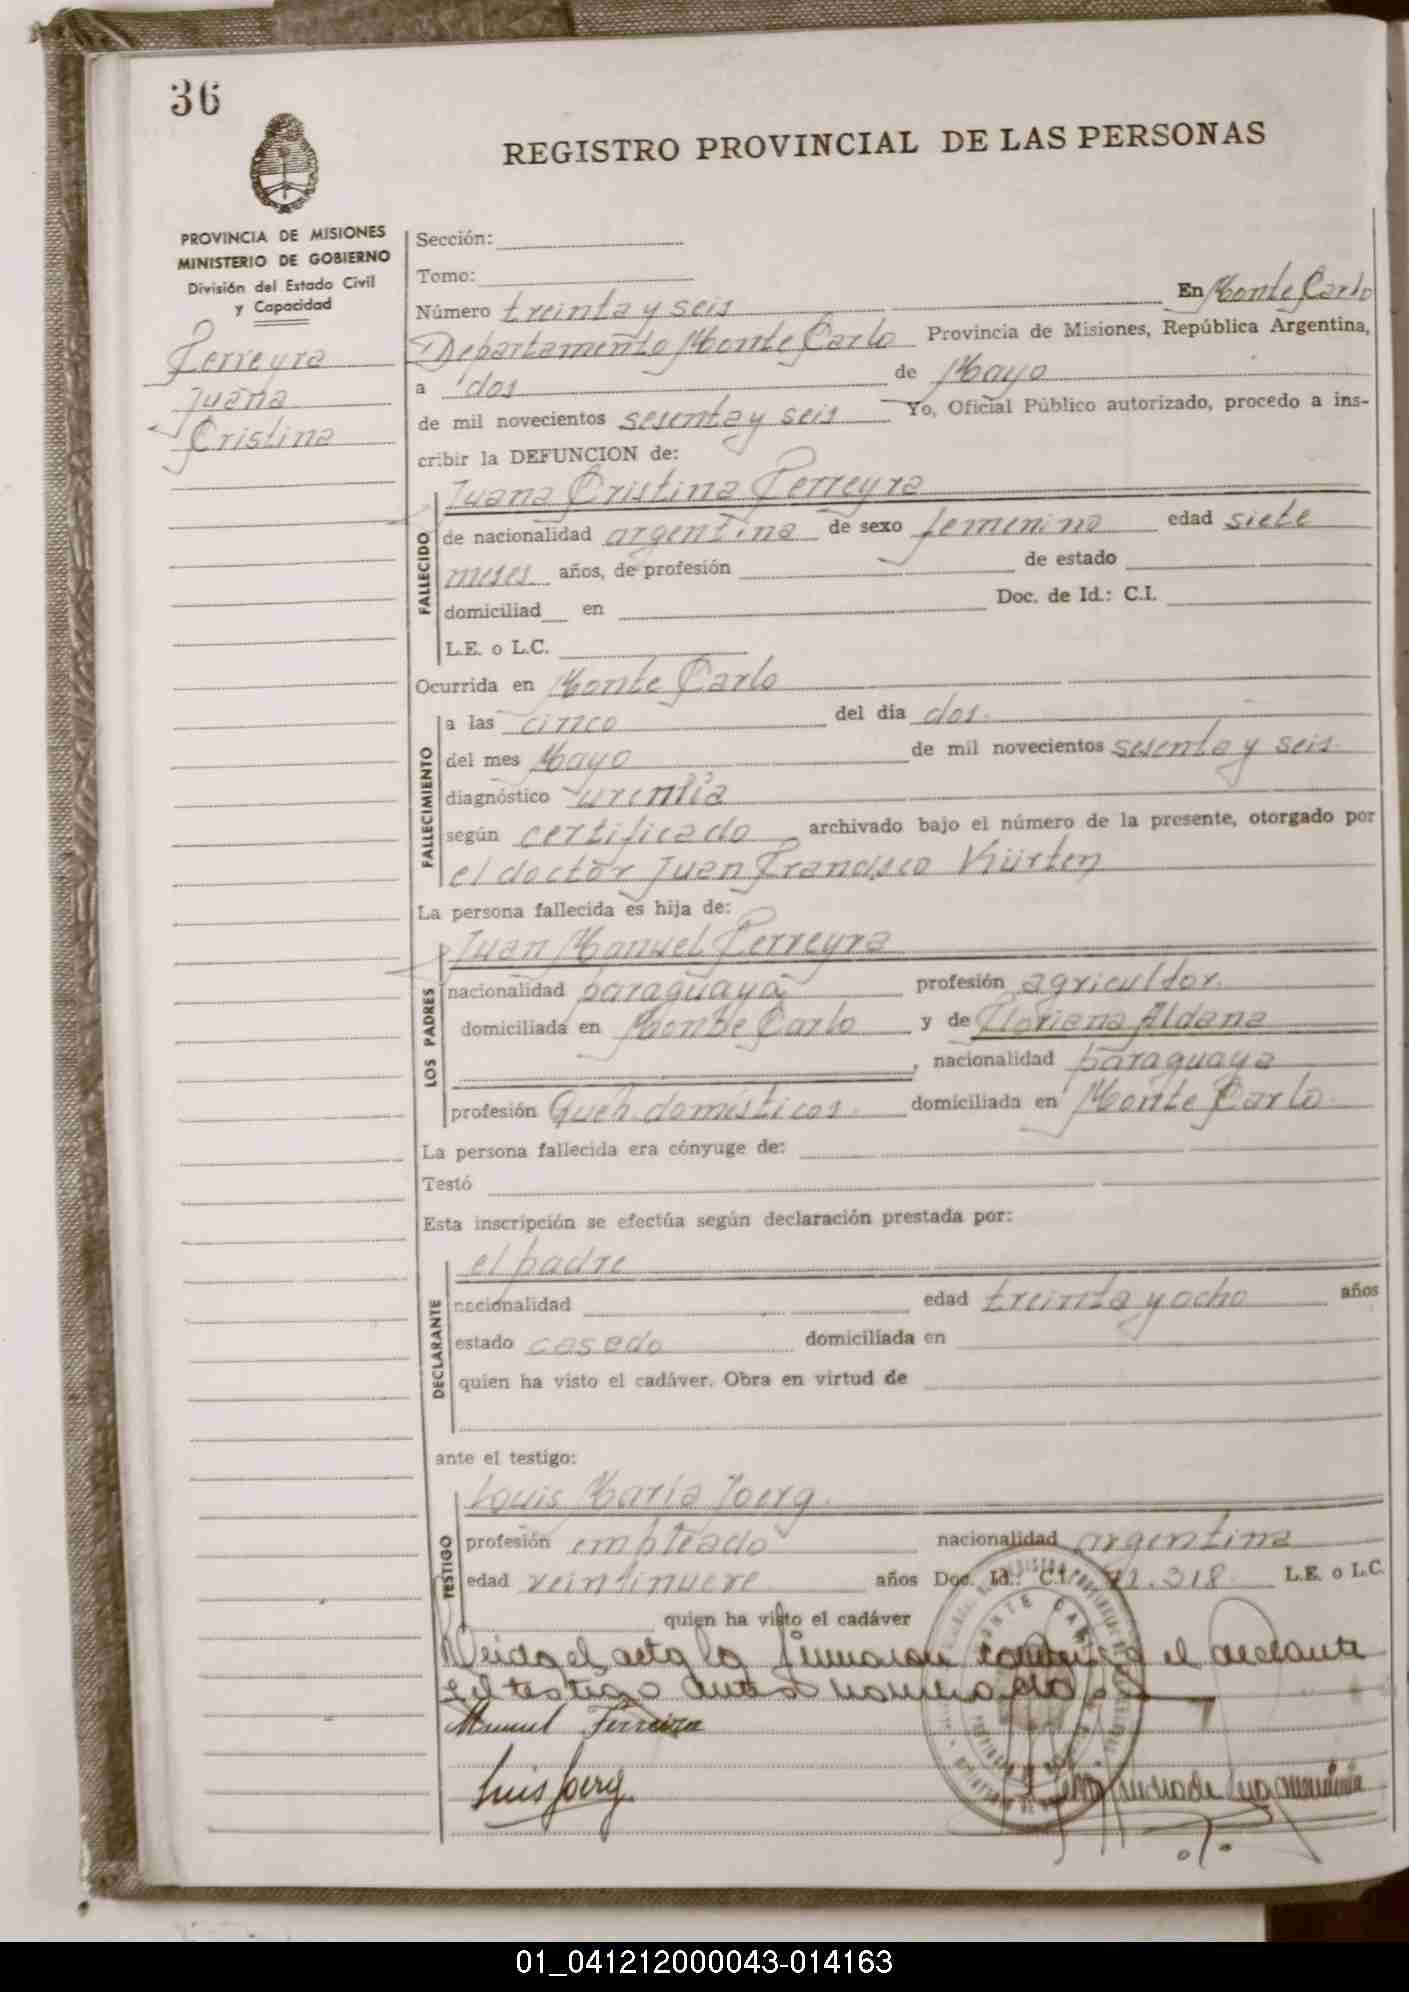 36
REGISTRO PROVINCIAL DE LAS PERSONAS
PROVINCIA DE MISIONES
MINISTERIO DE GOBIERNO
División del Estado Civil
y Capacidad
Ferreyra
Juana
Cristina
Sección:
Tomo:
Número treinta y seis En Monte Carlo
Departamento Monte Carlo Provincia de Misiones, República Argentina,
a dos de Mayo
de mil novecientos sesenta y seis Yo, Oficial Público autorizado, procedo a ins-
cribir la DEFUNCION de:
Juana Cristina Ferreyra
FALLECIDO
de nacionalidad argentina de sexo femenino edad siete
meses años, de profesión de estado
domiciliad en Doc. de Id.: C.I.
L.E. o L.C.
Ocurrida en Monte Carlo
FALLECIMIENTO
a las cinco del día dos.
del mes Mayo de mil novecientos sesenta y seis.
diagnóstico
según certificado archivado bajo el número de la presente, otorgado por
el doctor Juan Francisco Kürten
La persona fallecida es hija de:
LOS PADRES
Juan Manuel Ferreyra
nacionalidad paraguaya profesión agricultor.
domiciliada en Monte Carlo y de Floriana Aldana
, nacionalidad paraguaya
profesión Queh. domésticos. domiciliada en Monte Carlo.
La persona fallecida era cónyuge de:
Testó
Esta inscripción se efectúa según declaración prestada por:
DECLARANTE
el padre
nacionalidad edad treinta y ocho años
estado casado domiciliada en
quien ha visto el cadáver. Obra en virtud de
ante el testigo:
TESTIGO
Louis María Joerg.
profesión empleado nacionalidad argentina
edad veintinueve años Doc. Id.: C.I. .318. L.E. o L.C.
quien ha visto el cadáver
Leida el acta la firmaron conmigo el declarante
y el testigo antes nombrados
Manuel Ferreira
Luis Joerg
MONTE CARLO
01_041212000043-014163